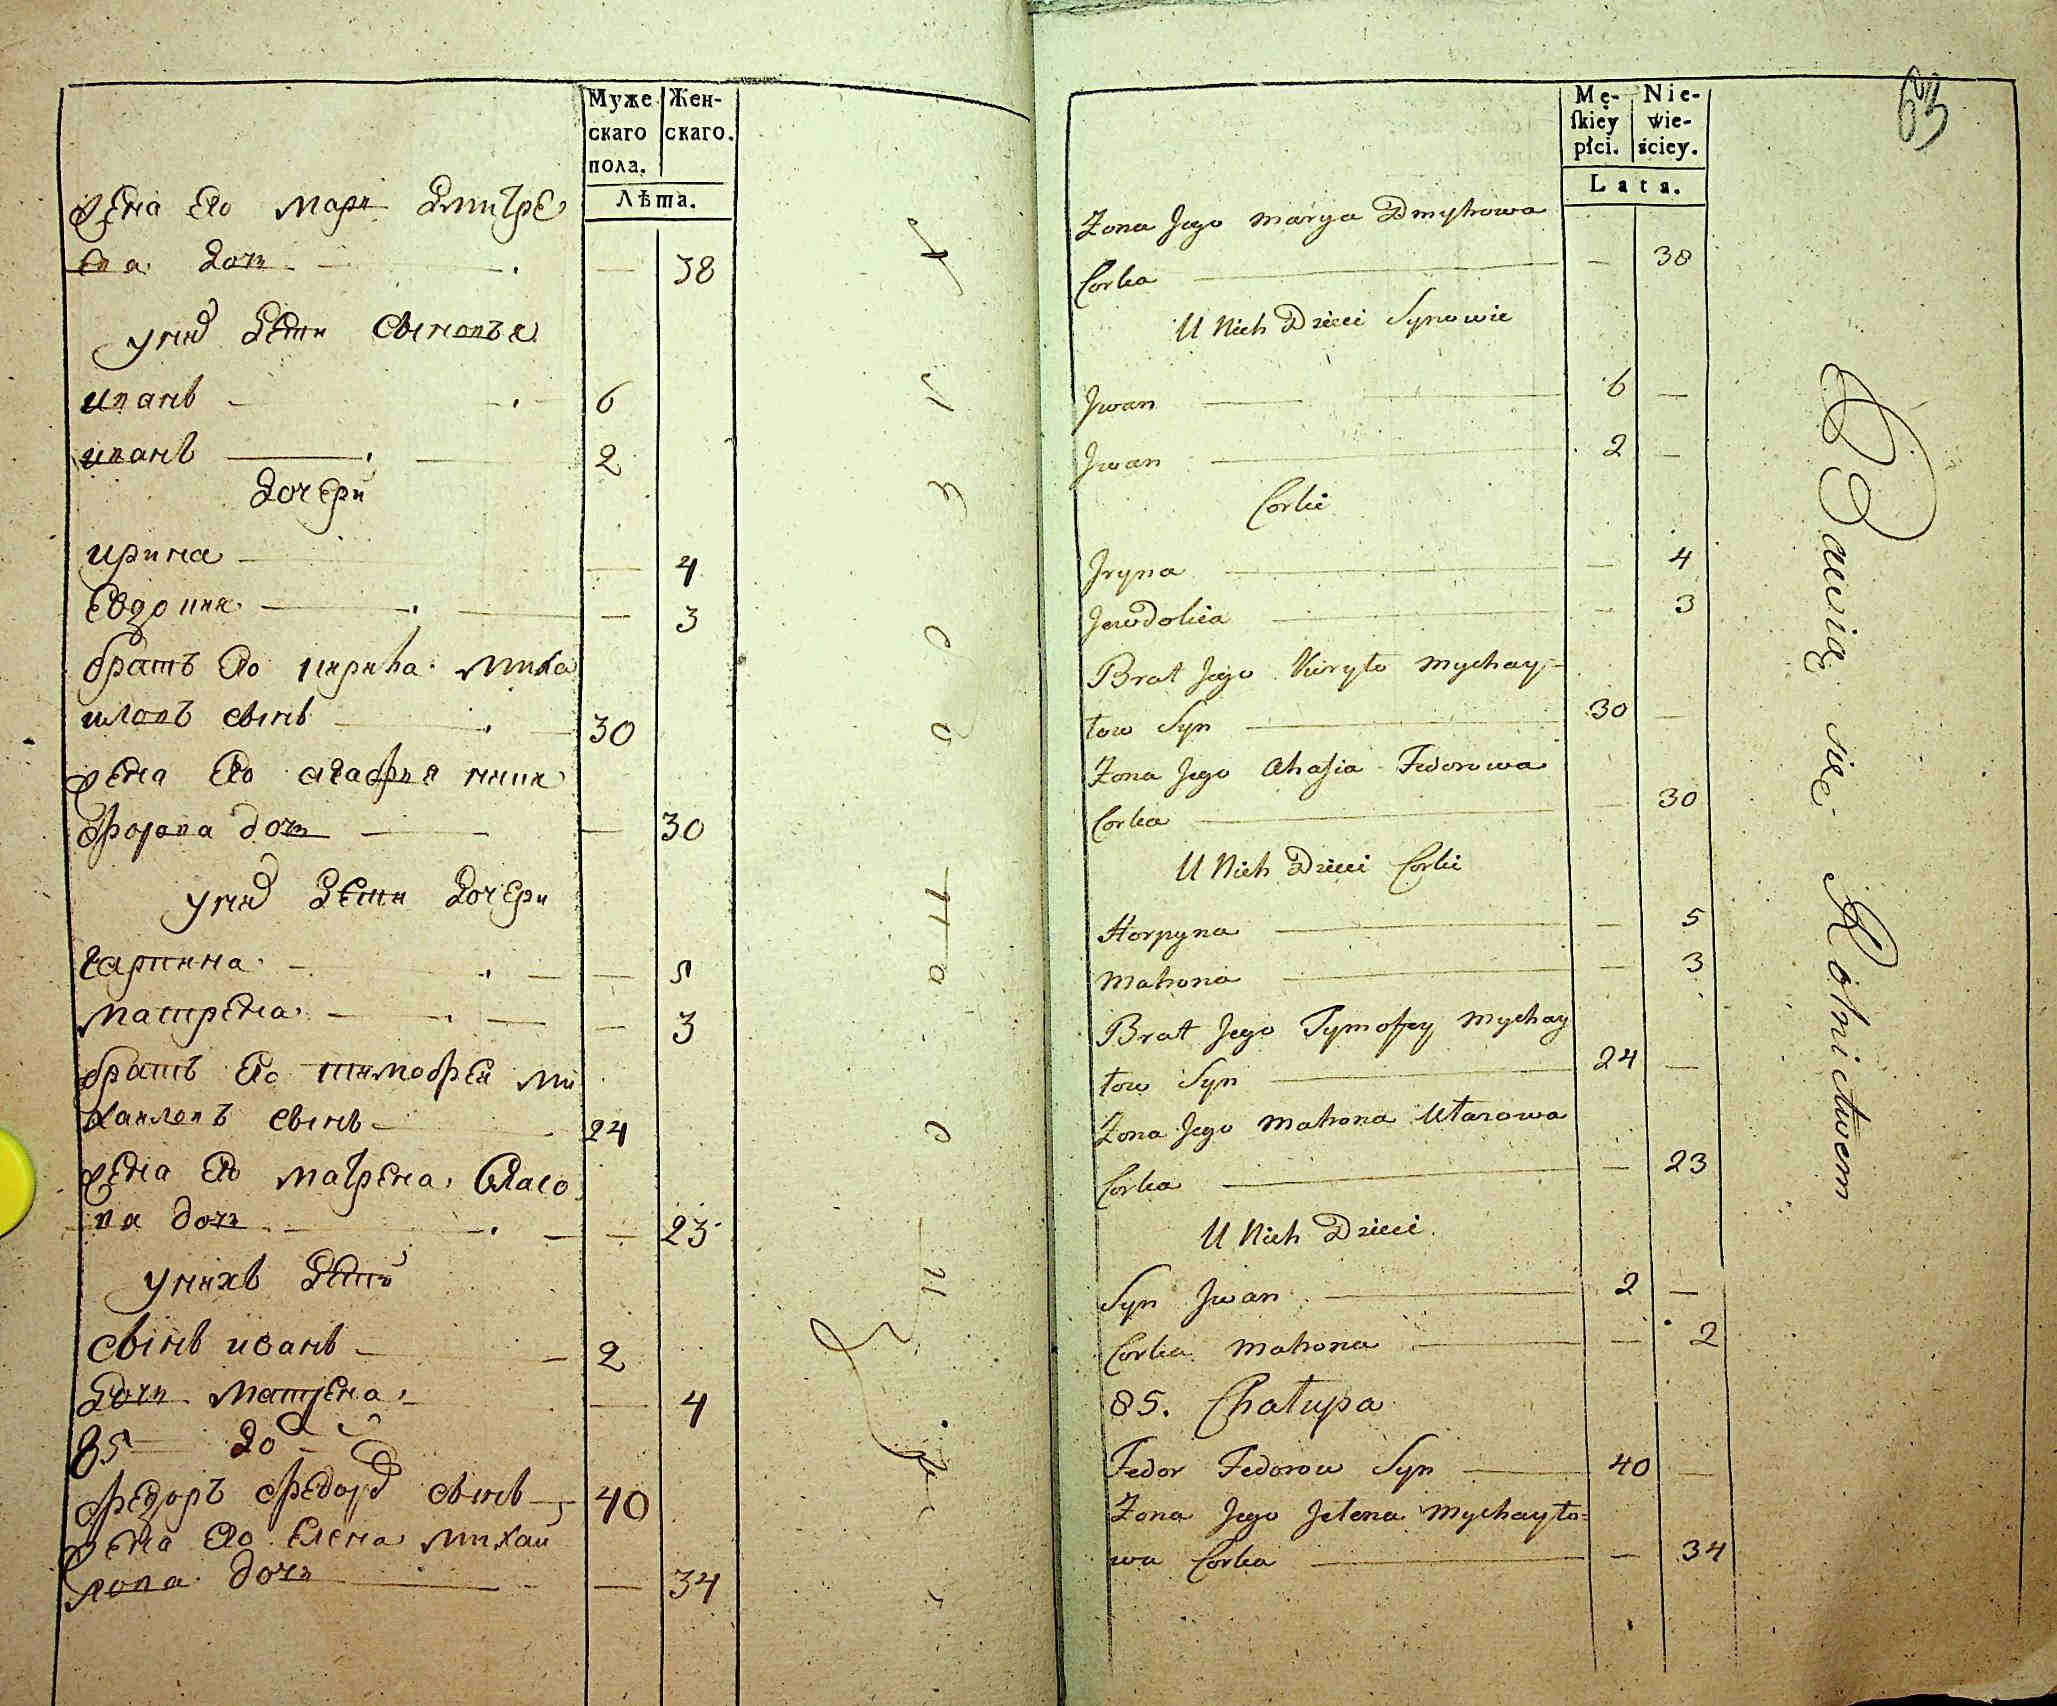 Муже
скаго
пола.
Жен-
скаго.
Лѣта.
жена его маря дмитре
ева дочь — 38
у них дети сыновъя
иванъ — 6
иванъ — 2
дочери
ирина — 4
евдокия — 3
братъ его кирила миха
иловъ сынъ — 30
жена его агафия ники
форова дочь — 30
у них дети дочери
гарпина — 5
матрена — 3
братъ его тимофеи ми
хаиловъ сынъ — 24
жена его матрена власо
ва дочь — 23
у нихъ дети
сынъ иванъ — 2
дочь матрена — 4
85 — дв
федоръ федоров сынъ — 40
жена его елена михаи
лова дочь — 34
63
Mę-
ſkiey
płci.
Nie-
wie-
ściey.
Lata.
Zona Jego Marya Dmytrowa
Corka — 38
U Nich Dzieci Synowie
Jwan — 6 —
Jwan — 2 —
Corki
Jryna — 4
Jewdokia — 3
Brat Jego Kiryło Mychay-
łow Syn — 30 —
Zona Jego Ahafia Fedorowa
Corka — 30
U Nich Dzieci Corki
Horpyna — 5
Matrona — 3
Brat Jego Tymofey Mychay
łow Syn — 24 —
Zona Jego Matrona Ułasowa
Corka — 23
U Nich Dzieci
Syn Jwan — 2 —
Corka Matrona — 2
85. Chałupa
Fedor Fedorow Syn — 40 —
Zona Jego Jełena Mychayło=
wa Corka — 34
Bawią się Rolnictwem